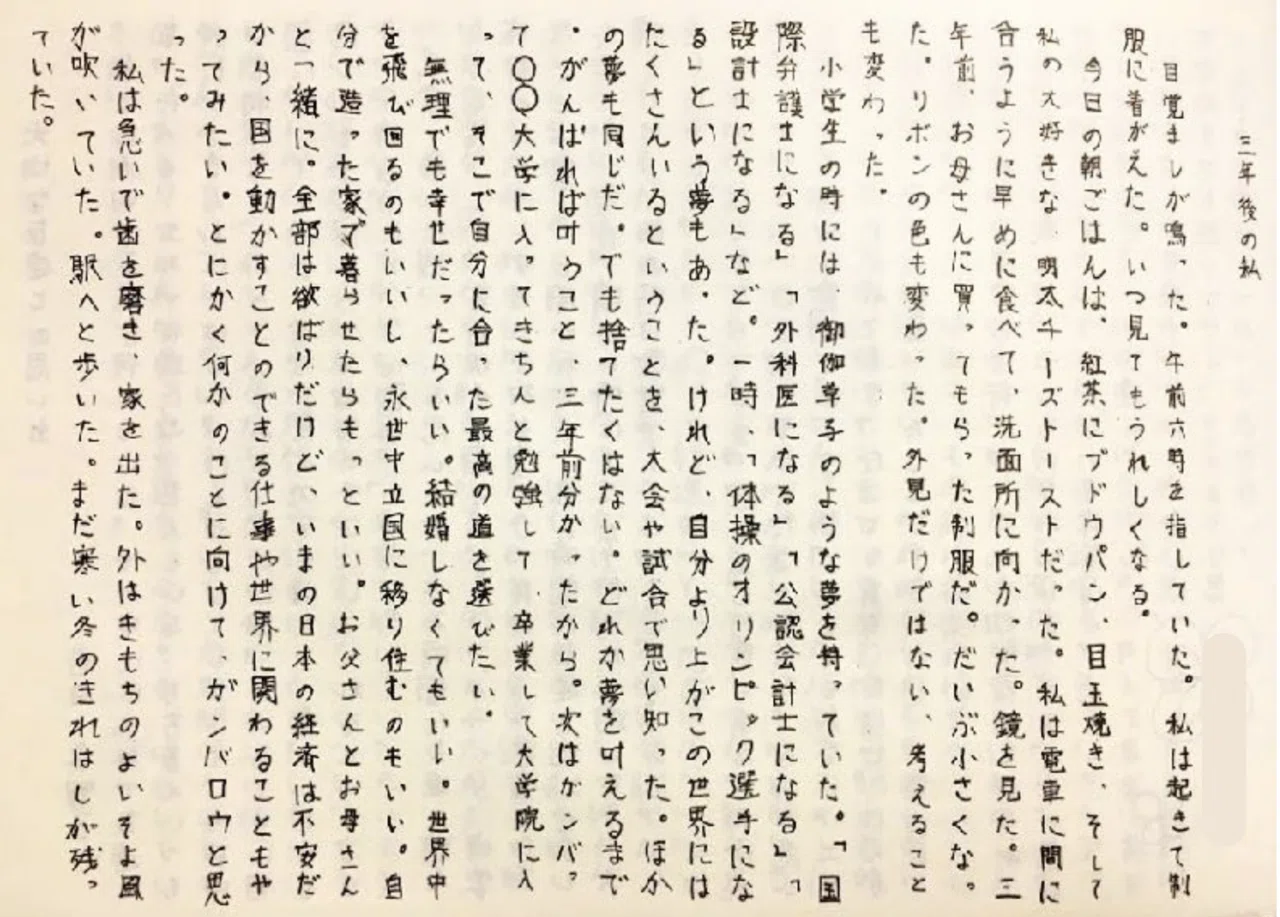 三年後の私
目覚ましが鳴った。午前六時を指していた。私は起きて制
服に着がえた。いつ見てもうれしくなる。
今日の朝ごはんは、紅茶にブドウパン、目玉焼き、そして
私の大好きな明太チーズトーストだった。私は電車に間に
合うように早めに食べて、洗面所に向かった。鏡を見た。三
年前、お母さんに買ってもらった制服だ。だいぶ小さくなっ
た。リボンの色も変わった。外見だけではない、考えること
も変わった。
小学生の時には御伽草子のような夢を持っていた。「国
際弁護士になる」「外科医になる」「公認会計士になる」「
設計士になる」など。一時、「体操のオリンピック選手にな
る」という夢もあった。けれど、自分より上がこの世界には
たくさんいるということを、大会や試合で思い知った。ほか
の夢も同じだ。でも捨てたくはない。どれか夢を叶えるまで
。がんばれば叶うこと、三年前分かったから。次はガンバっ
て〇〇大学に入ってきちんと勉強して卒業して大学院に入
って、そこで自分に合った最高の道を選びたい。
無理でも幸せだったらいい。結婚しなくてもいい。世界中
を飛び回るのもいいし、永世中立国に移り住むのもいい。自
分で造った家で暮らせたらもっといい。お父さんとお母さん
と一緒に。全部は欲ばりだけど、いまの日本の経済は不安だ
から、国を動かすことのできる仕事や世界に関わることもや
ってみたい。とにかく何かのことに向けて、ガンバロウと思
った。
私は急いで歯を磨き、家を出た。外はきもちのよいそよ風
が吹いていた。駅へと歩いた。まだ寒い冬のきれはしが残っ
ていた。